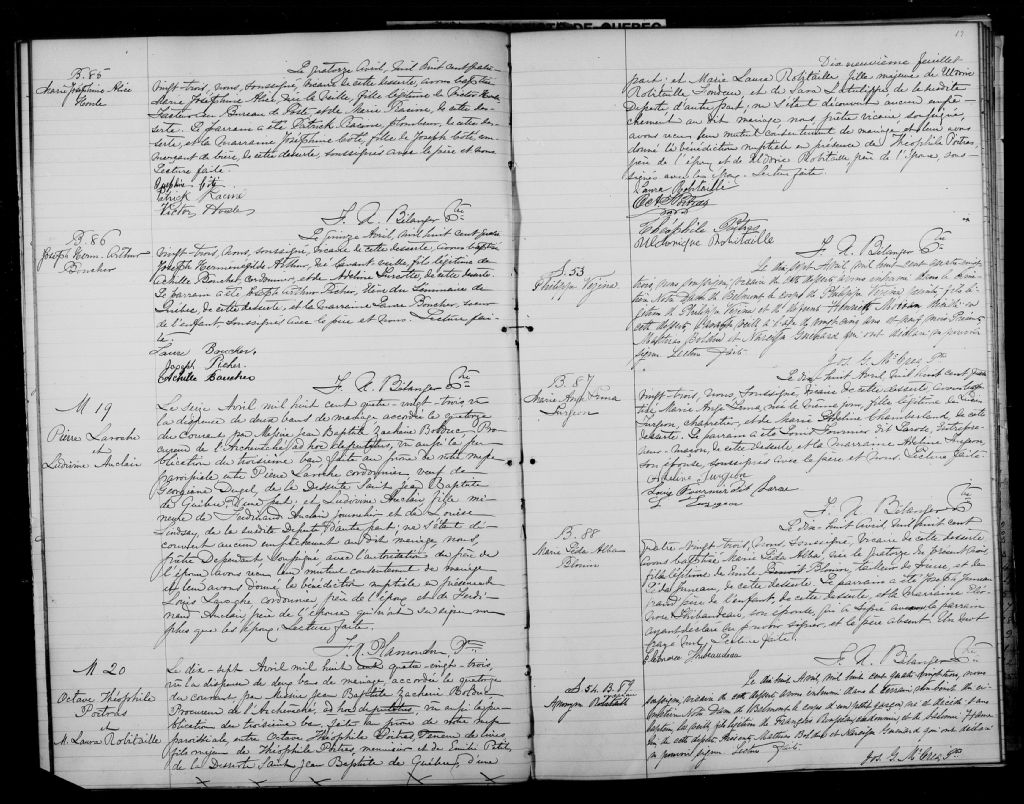 DE QUEBEC
B. 85
Marie Joséphine Alice
Le quatorze Avril, mil huit cent quatre-
vingt-trois, nous, soussigné, vicaire de cette desserte, avons baptisé
Marie Joséphine Alice, née la veille, fille légitime de Victor
facteur au Bureau de Poste, et de Marie Racine, de cette des-
serte. Le parrain a été Patrick Racine, plombier, de cette des-
serte, et la marraine Joséphine Coté, fille de Joseph Coté, com-
merçant de bière, de cette desserte, soussignés avec le père et nous.
Lecture faite.
Joséphine Coté
Patrick Racine
Victor
F. X. Bélanger Ptre
B. 86
Joseph Herm. Arthur
Boucher
Le quinze Avril, mil huit cent quatre-
vingt-trois, nous, soussigné, vicaire de cette desserte, avons baptisé
Joseph Herménégilde Arthur, né l'avant veille, fils légitime de
Achille Boucher, cordonnier, et de Adeline Turcotte, de cette desserte.
Le parrain a été Joseph Arthur Picher, élève du Séminaire de
Québec, de cette desserte, et la marraine Laure Boucher, soeur
de l'enfant, soussignés avec le père et nous. Lecture fai-
te.
Laure Boucher
Joseph Picher
Achille Boucher
F. X. Bélanger Ptre
M 19
Pierre Laroche
et
Ludivine Auclair
Le seize Avril mil huit cent quatre-vingt-trois vu
la dispense de deux bans de mariage accordée le quatorze
du courant par Messire Jean Baptiste Zacharie Bolduc Pro-
cureur de l'Archevêché, ad hoc deputatus, vu aussi la pu-
blication du troisième ban faite au prône de notre messe
paroissiale entre Pierre Laroche cordonnier, veuf de
Georgiana Dugal, de la Desserte Saint Jean Baptiste
de Québec, d'une part; et Ludivine Auclair, fille mi-
neure de Ferdinand Auclair journalier et de Louise
Lindsay, de la susdite Desserte d'autre part; ne s'étant dé-
couvert aucun empêchement au dit mariage nous,
prêtre Desservant, soussigné avec l'autorisation du père de
l'épouse avons reçu leur mutuel consentement de mariage
et leur avons donné la bénédiction nuptiale en présence de
Louis Laroche cordonnier père de l'époux et de Ferdi-
nand Auclair père de l'épouse qui n'ont su signer non
plus que les époux. Lecture faite.
F. H. Plamondon Ptre
M 20
Octave Théophile
Poitras
et
M. Laura Robitaille
Le dix-sept Avril mil huit cent quatre-vingt-trois,
vu la dispense de deux bans de mariage accordée le quatorze
du courant par Messire Jean Baptiste Zacharie Bolduc
Procureur de l'Archevêché, ad hoc deputatus, vu aussi la pu-
blication du troisième ban, faite au prône de notre messe
paroissiale entre Octave Théophile Poitras, teneur de livres,
fils majeur de Théophile Poitras, menuisier et de Emilie Petit,
de la Desserte Saint Jean Baptiste de Québec, d'une
Dix neuvième feuillet
part; et Marie Laura Robitaille fille majeure de Uldoric
Robitaille Tondeur et de Sara Létubippe de la susdite
Desserte d'autre part; ne s'étant découvert aucun empê-
chement au dit mariage nous prêtre vicaire, soussigné,
avons reçu leur mutuel consentement de mariage et leur avons
donné la bénédiction nuptiale en présence de Théophile Poitras
père de l'époux et de Uldoric Robitaille père de l'épouse, sous-
signés avec les époux. Lecture faite.
Laura Robitaille
O. T. Poitras
Théophile Poitras
Robitaille
F. X. Bélanger Ptre
S. 53
Philippe Vézina
Le dix sept Avril, mil huit cent quatre vingt
trois, nous soussigné, vicaire de cette desserte avons inhumé dans le cime-
tière Notre Dame de Belmont le corps de Philippe Vézina
de Philippe Vézina et de
cette desserte à l'age de vingt cinq ans et neuf mois. Présents
Mathias Bolduc et Narcisse Guénard qui ont déclaré ne pouvoir
signer. Lecture faite.
Jos. G. McCrea Ptre
B. 87
Marie Ange Emma
Turgeon
Le dix-huit Avril, mil huit cent quatre
vingt-trois, nous soussigné, vicaire de cette desserte avons bap-
tisé Marie Ange Emma, née le fille légitime de
Turgeon, charretier, et de Marie Chamberland, de cette
desserte. Le parrain a été Louis Fournier dit Larose, entrepre-
neur, de cette desserte, et la marraine Adeline Turgeon,
son épouse, soussignés avec le père et nous. Lecture faite.
Adeline Turgeon
Louis Fournier dit Larose
Turgeon
F. X. Bélanger Ptre
B. 88
Marie Léda Alba
Blouin
Le dix-huit Avril, mil huit cent
quatre vingt-trois, nous, soussigné, vicaire de cette desserte
avons baptisé Marie Léda Alba, née le quatorze du présent mois
fille légitime de Emile Blouin, tailleur de pierre, et de
Juneau, de cette desserte. Le parrain a été Joseph Juneau
grand père de l'enfant, de cette desserte, et la marraine Elé-
nore Thibaudeau, son épouse, qui a signé le parrain
ayant déclaré ne pouvoir signer, et le père absent. Un mot
rayé nul. Lecture faite.
Elénore Thibaudeau
F. X. Bélanger Ptre
S. 54.
Anonyme
Le dix huit Avril, mil huit cent quatre vingt trois, nous
soussigné, vicaire de cette desserte avons inhumé dans le terrain du ci-
metière Notre Dame de Belmont le corps d'un petit garçon né et décédé sans
baptême fils légitime de François cordonnier, et de
de cette desserte. Présents Mathias Bolduc et Narcisse Guénard qui ont déclaré
ne pouvoir signer. Lecture faite.
Jos. G. McCrea Ptre